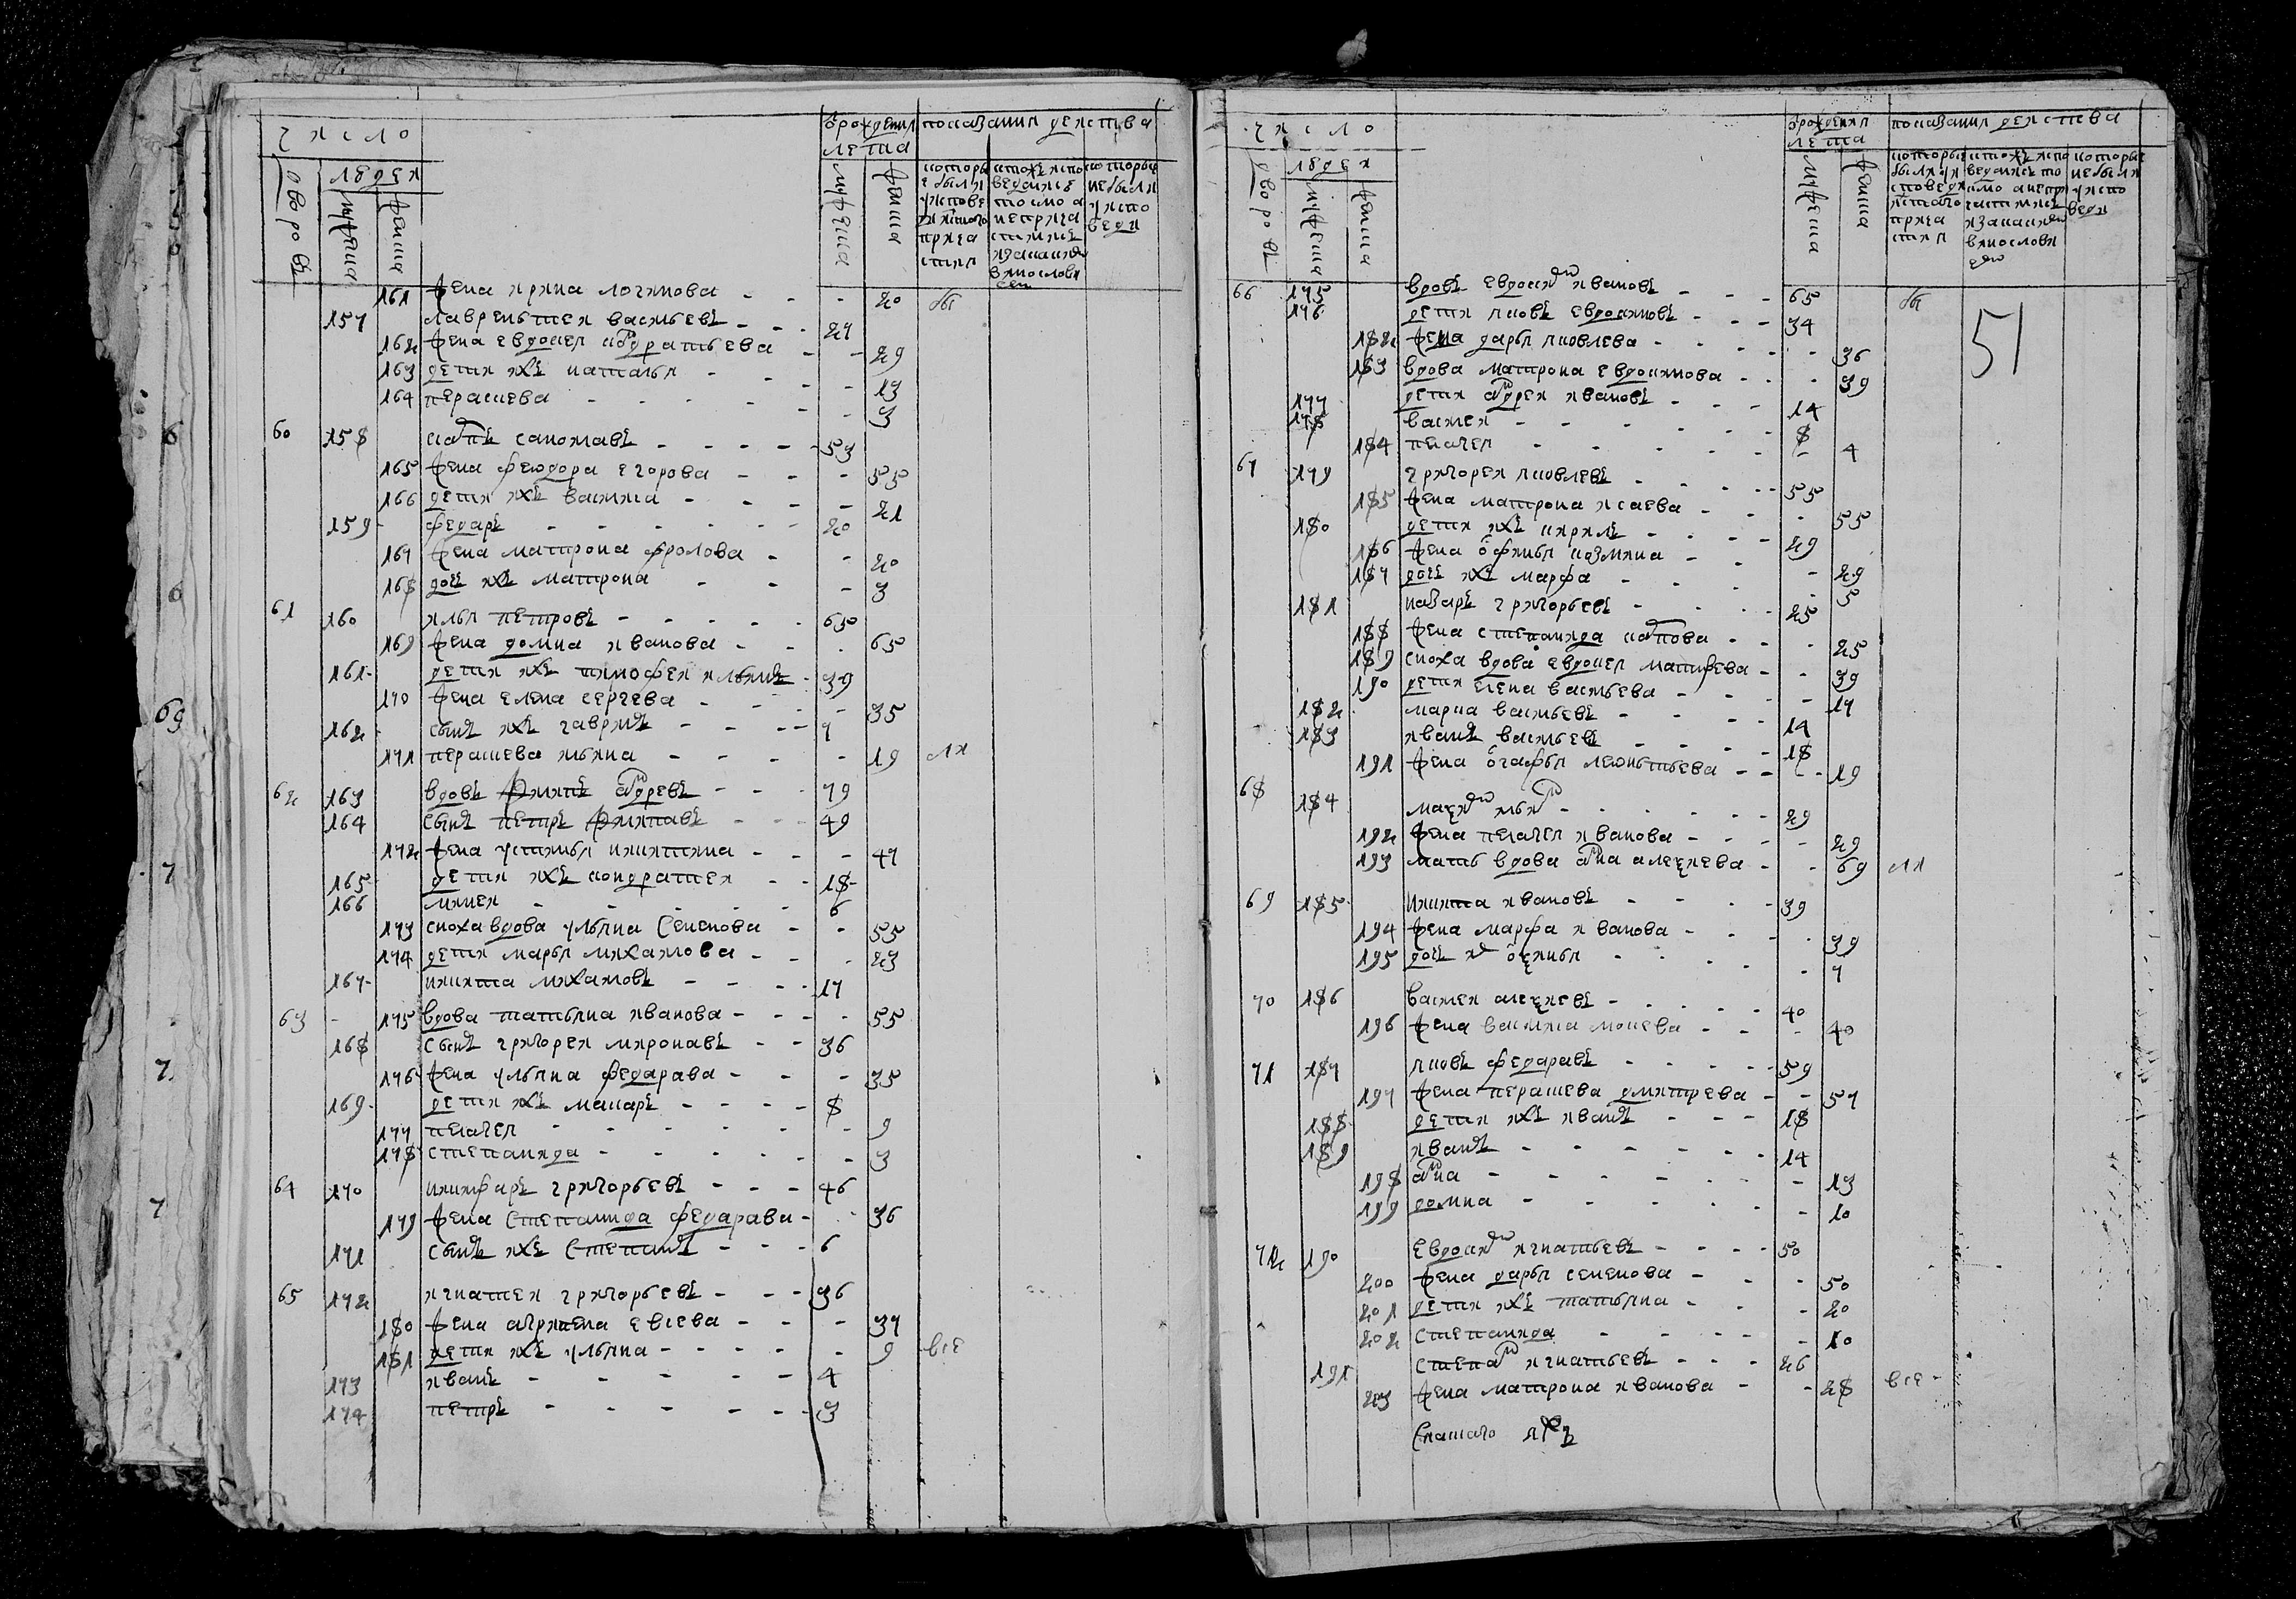 число
дворовъ
людей
мужеска
женска
ѿ рожденiя лета
мужеска
женска
показания действа
161 жена ирина логинова - - - 20 бы
157 лаврентей васильевъ - - - 27
162 жена евдокея кондратьева - - 29
163 дети ихъ наталья - - - 13
164 перасцева - - - - 3
60 158 капъ сапожавъ - - - - 53
165 жена феодора егорова - - - 55
166 дети ихъ василиса - - - 21
159 федаръ - - - - - 20
167 жена матрона фролова - - 20
168 дочь ихъ матрона - - - 3
61 160 илья петровъ - - - - 65
169 жена домна иванова - - . 65
161 дети ихъ тимофей ильинъ - 39
170 жена елена сергева - - - 35
162 сынъ ихъ гаврилъ - - - - 7
171 перасцева ильина - - - - 19 ли
62 163 вдовъ филипъ андревъ - - - 79
164 сынъ петръ филипавъ - - - 49
172 жена устинья никитина - - - 47
165 дети ихъ кондратей - - 18
166 микей - - - - - 6
173 сноха вдова ульяна семенова - - 55
174 дети марья михалова - - - 23
167 никита михаловъ - - - - 17
63 175 вдова татьяна иванова - - - - 55
168 сынъ григорей миронавъ - - 36
176 жена ульяна федарава - - - 35
169 дети ихъ макаръ - - - - 8
177 пелагея - - - - - - 9
178 степанида - - - - - - 3
64 170 никифаръ григорьевъ - - - 46
179 жена степанида федарава - - 36
171 сынъ ихъ степанъ - - - 6
65 172 игнатей григорьевъ - - - 36
180 жена агрипена евсева - - - 37
181 дети ихъ ульяна - - - - - 9 все
173 иванъ - - - - - - 4
174 петръ - - - - - - 3
число
дворовъ
людей
мужеска
женска
ѿ рожденiя лета
мужеска
женска
показания действа
51
66 175 вдовъ евдокимъ ивановъ - - - 65 бы
176 дети яковъ евдокимовъ - - - 34
182 жена дарья яковлева - - - - 36
183 вдова матрона евдокимова - - - 39
177 дети андрей ивановъ - - - 14
178 василей - - - - - 8
184 пелагея - - - - - - 4
67 179 григорей яковлевъ - - - - 55
185 жена матрона исаева - - - 55
180 дети ихъ кирилъ - - - - 29
186 жена офимья козмина - - - 29
187 дочь ихъ марфа - - - - 5
181 назаръ григорьевъ - - - - 25
188 жена степанида капова - - - 25
189 сноха вдова евдокея матфева - - 39
190 дети елена васильева - - - - 17
182 марка васильевъ - - - - 14
183 иванъ васильевъ - - - - 18
191 жена огафья леонтьева - - - - 19
68 184 максимъ ильинъ - - - - - 29
192 жена пелагея иванова - - - - 29
193 мать вдова анна алексева - - 69 ли
69 185 никита ивановъ - - - - 39
194 жена марфа иванова - - - - 39
195 дочь ихъ оксинья - - - - - 7
70 186 василей алексевъ - - - - - 40
196 жена василиса мокева - - - 40
71 187 яковъ федаравъ - - - - - 59
197 жена перасцева дмитрева - - 57
188 дети ихъ иванъ - - - - 18
189 иванъ - - - - - - 14
198 анна - - - - - - - 13
199 домна - - - - - - - 10
72 190 евдокимъ игнатьевъ - - - - 50
200 жена дарья семенова - - - 50
201 дети ихъ татьяна - - - 20
202 степанида - - - - - 10
191 степанъ игнатьевъ - - - 26
203 жена матрона иванова - - 28 все